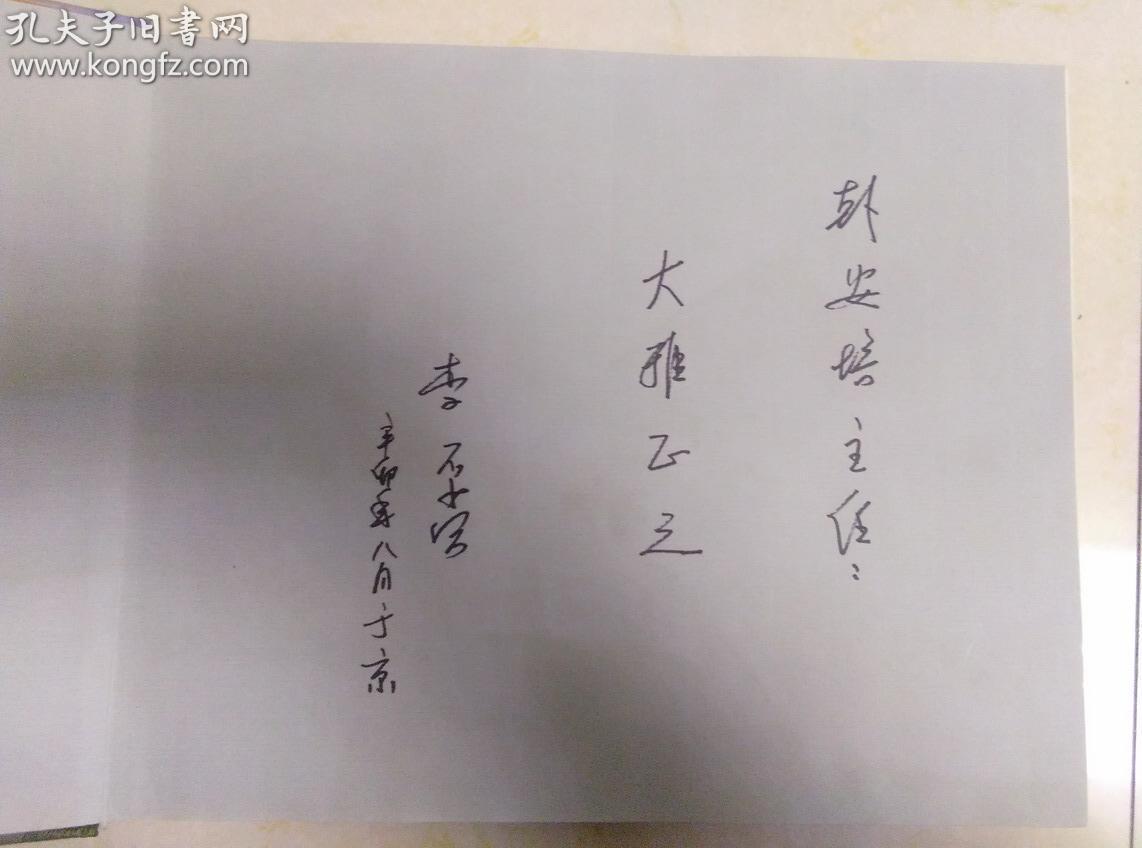 孔夫子旧书网
www.kongfz.com
安培主任:
大雅正之
李
辛卯年八月于京